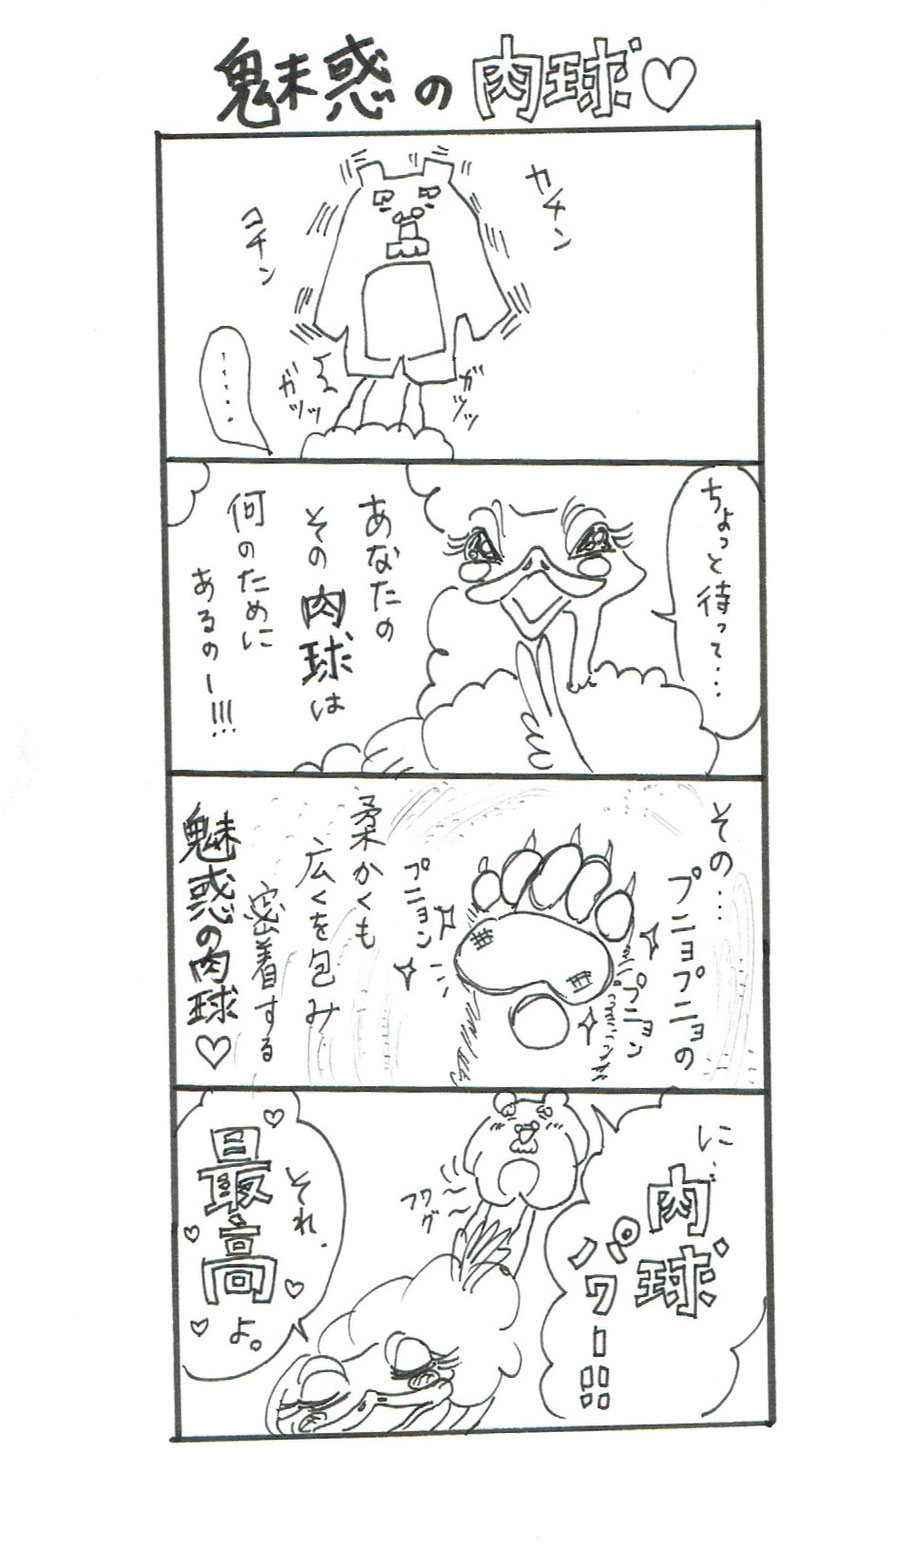 魅惑の肉球♡
カチン
コチン
ガッツ
ガッツ
・・・・・
ちょっと待って・・・
あなたの
その肉球は
何のために
あるのー!!!
その・・・
プニョプニョの
プニョン
プニョン
柔かくも
広くを包み
密着する
魅惑の肉球♡
に・・・
肉球
パワー!!
フワ
グ
それ、
最高
よ。